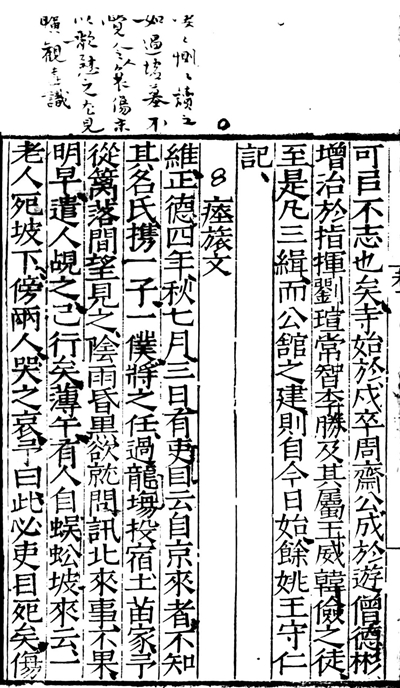 惻讀之
如過墟墓不
覺令人傷末
以之見
曠觀達識
可㠯不志也矣寺始於戍卒周齋公成於遊僧德彬
增治於指揮劉瑄常智李勝及其屬王威韓儉之徒
至是凡三緝而公舘之建則自今日始餘姚王守仁
記、
8 瘞旅文
維正德四年秋七月三日有吏目云自京來者、不知
其名氏、攜一子、一僕、將之任、過龍塲、投宿土苗家、予
從籬落間望見之、陰雨昏黑、欲就問訊北來事、不果、
明早、遣人覘之、已行矣、薄午、有人自蜈蚣坡來云、一
老人死坡下、傍兩人哭之哀、予曰、此必吏目死矣、傷